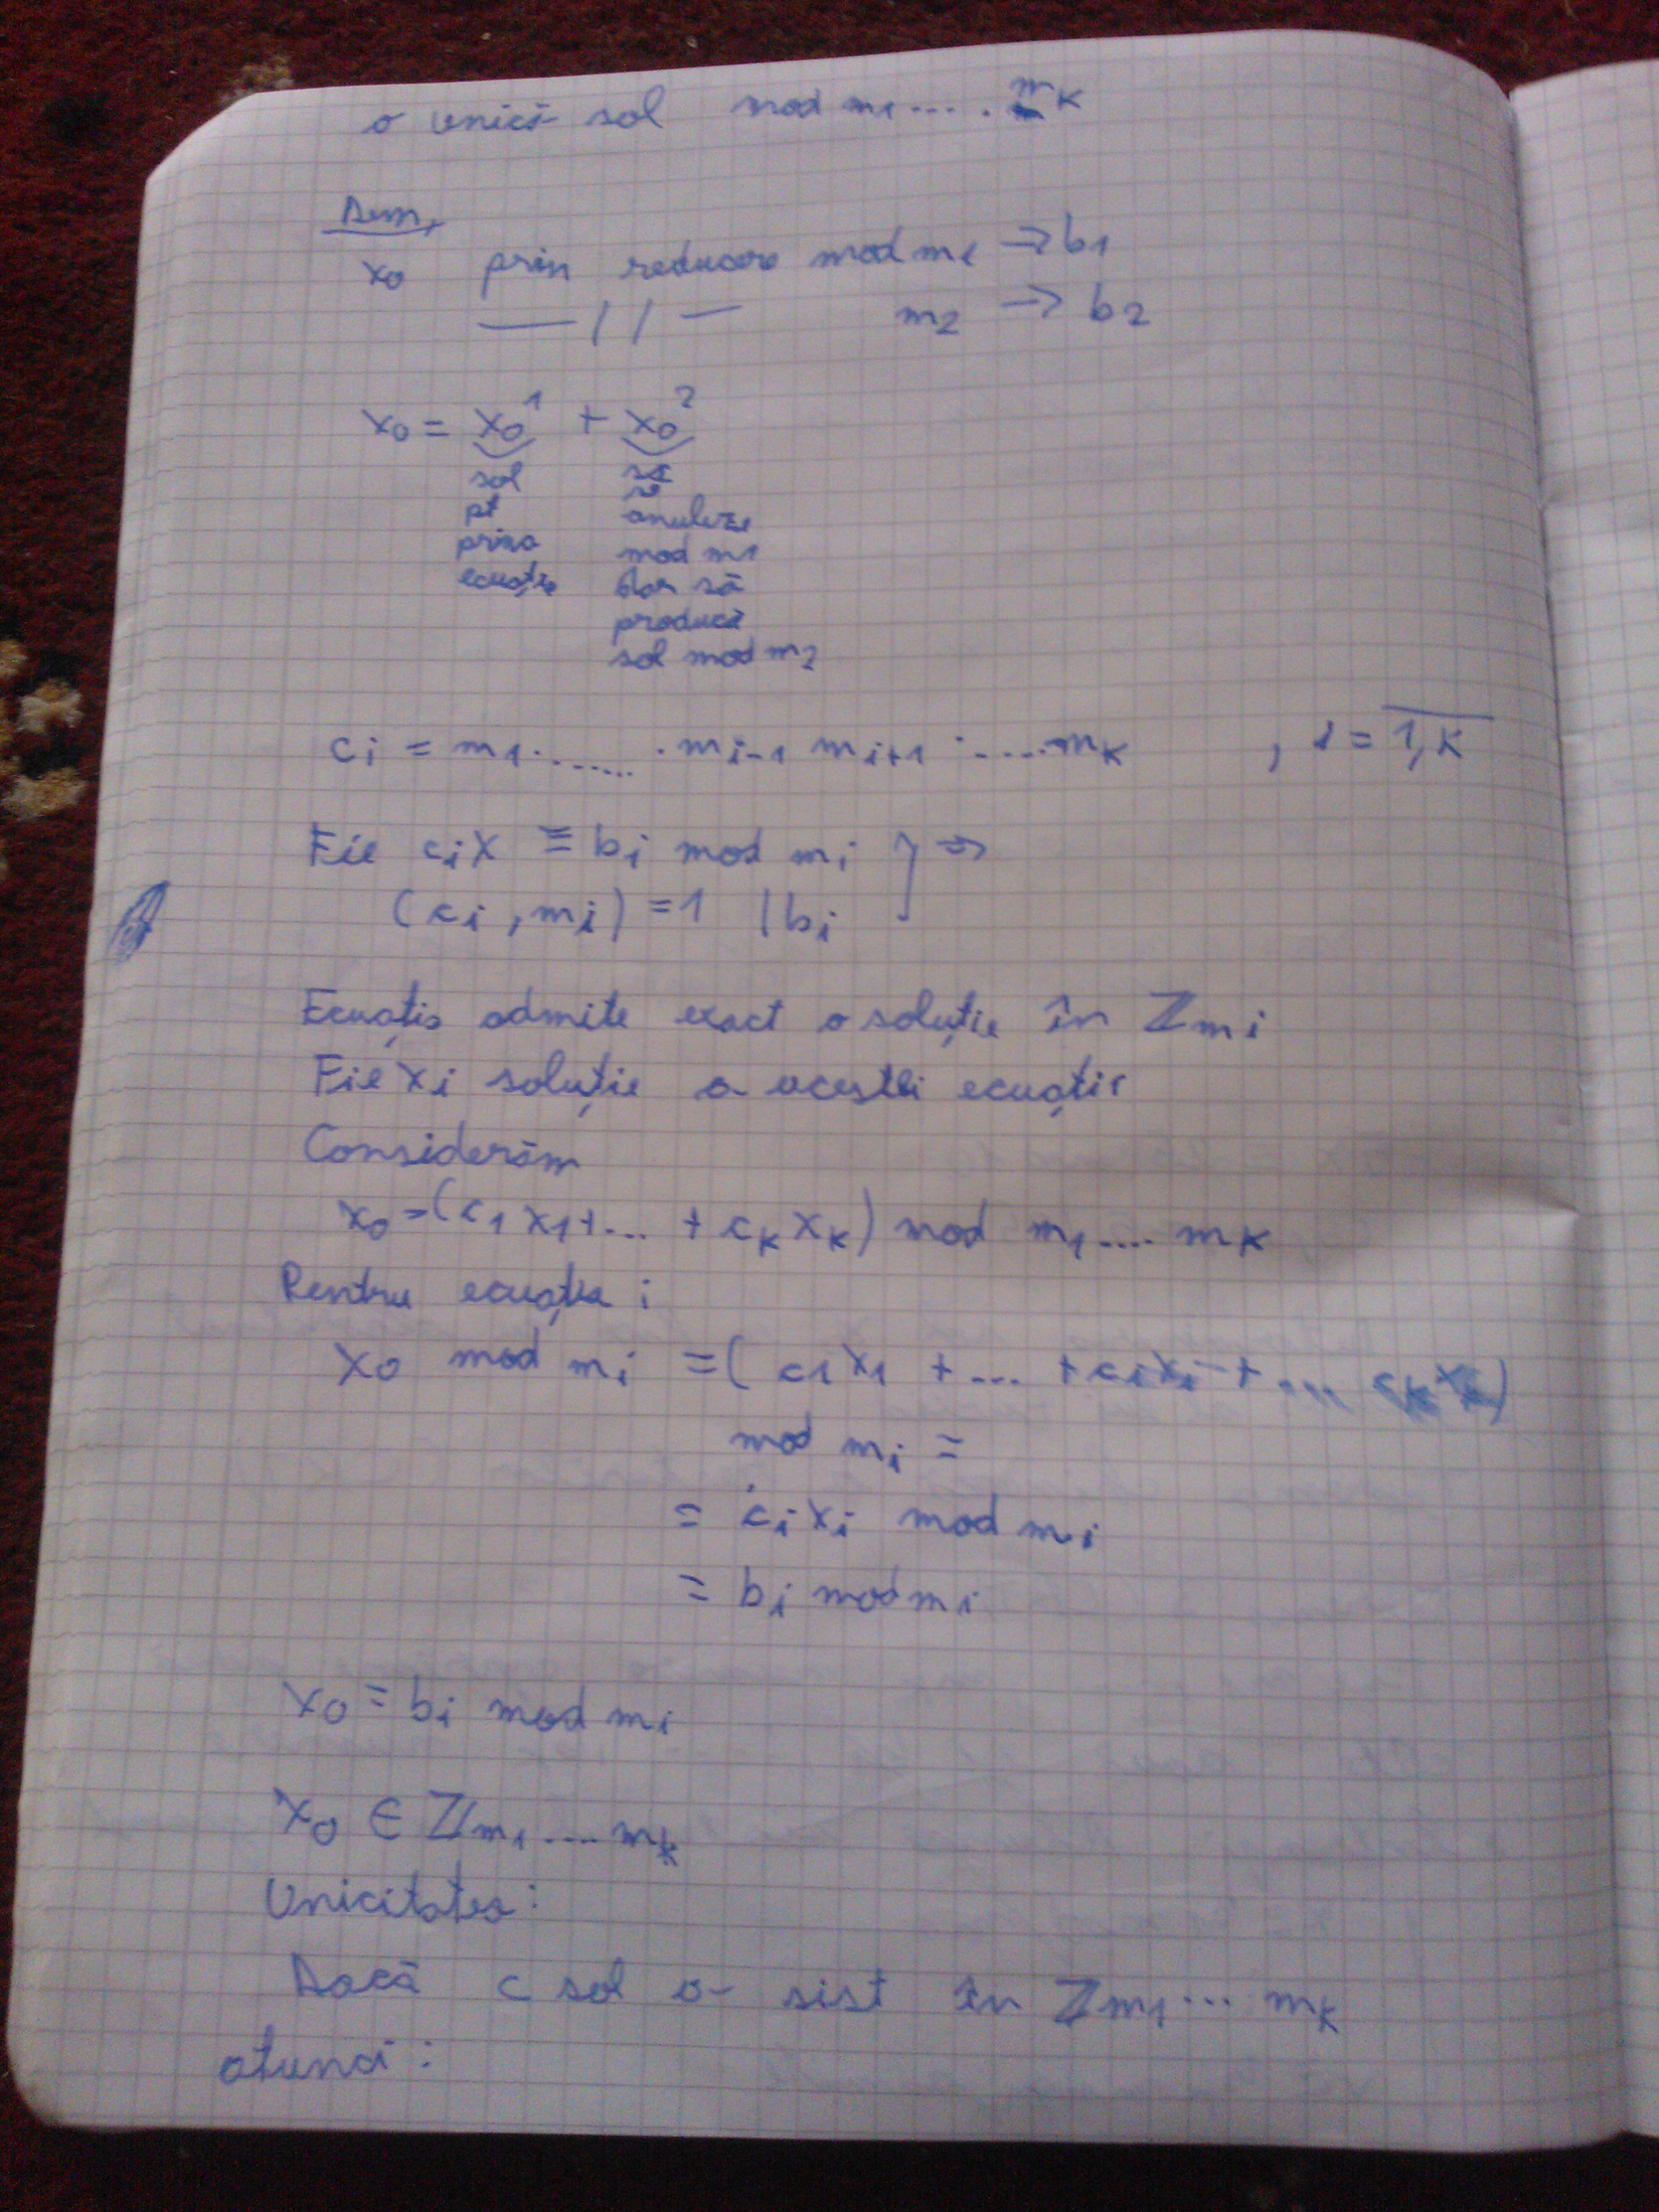 o unică sol mod m1 .... . mk
Dem,
x0 prin reducere mod m1 → b1
— // — m2 → b2
x0 = x0^1 + x0^2
sol
pt
prima
ecuație
să
se
anuleze
mod m1
dar să
producă
sol mod m2
ci = m1 ....... . mi-1 mi+1 . .... mk , i = 1,k
Fie cix ≡ bi mod mi } ⇒
(ci, mi) = 1 | bi
Ecuația admite exact o soluție în ℤmi
Fie xi soluție a acestei ecuații
Considerăm
x0 = (c1x1 + ... + ckxk) mod m1 .... mk
Pentru ecuația i
x0 mod mi = (c1x1 + ... + cixi + ... ckxk)
mod mi =
= cixi mod mi
= bi mod mi
x0 = bi mod mi
x0 ∈ ℤm1 .... mk
Unicitatea:
Dacă c sol a sist în ℤm1 ... mk
atunci: